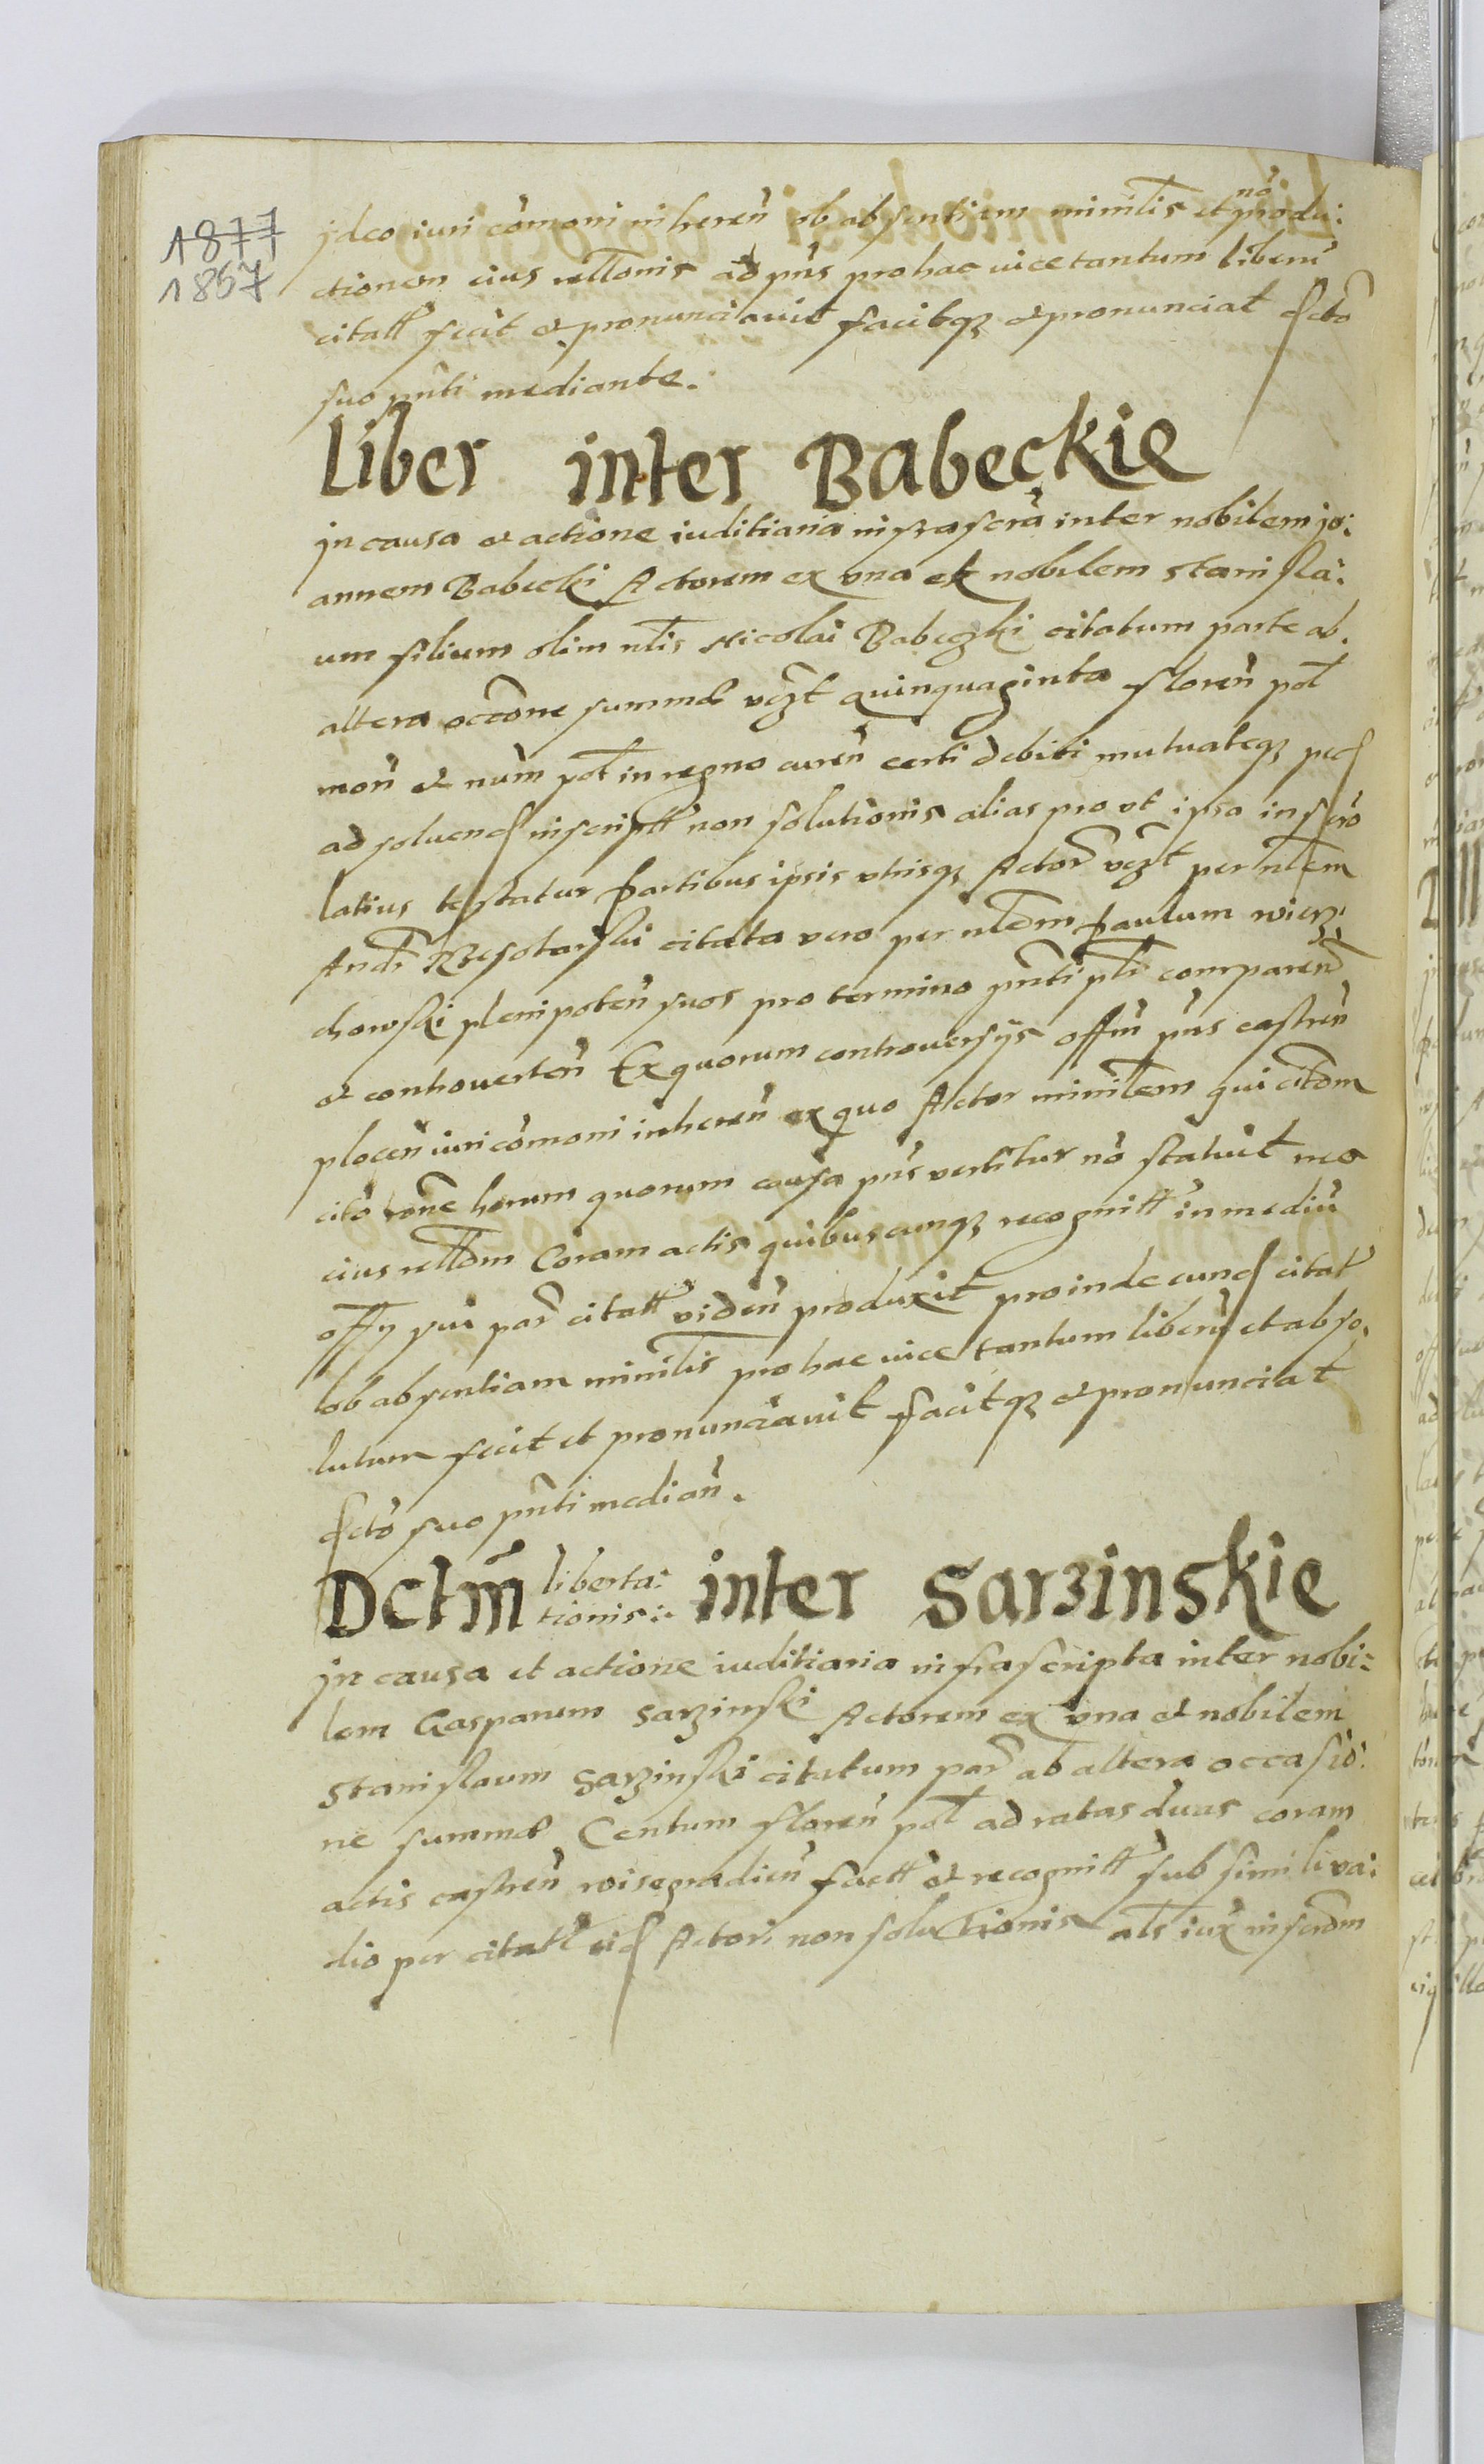 1877
1867
jdeo iuri cōmoni inheren̄ ob absentiam minilis et nō produ:
ctionem eius rellonis ad pn̄s pro hac vice tantum liberū
citatt fecit et pronunciavit facitqȝ et pronunciat dcto
suo pn̄ti mediante.
Liber inter Babeckie
jn causa et actione iuditiaria infrascrā inter nobilem jo:
annem Babecki Actorem ex vna et nobilem stanisla:
um filium olim nlis Nicolai Babeczki citatum parte ab
altera occōne summæ vczt quinquaginta floren̄ pol
mon̄ et num̄ pol in regno curen̄ certi debiti mutuateqȝ pecd
ad soluend inscriptt non solutionis alias pro vt ipsa inscrō
latius testatur partibus ipsis vtrisqȝ Actor̄ vczt per nlem
Andr̄ citata vero per nlēm paulum wierz:
chowski plenipoten̄ suos pro termino pn̄ti pli comparen̄
et controverten̄ Ex quorum controversijs offm̄ pn̄s castren̄
plocen̄ iuri cōmoni inheren̄ ex quo Actor minilem qui citōm
citō rōne horum quorum causa pn̄s vertitur nō statuit nec
eius rellōm Coram actis quibuscunqȝ recognitt in mediū
offy sui par̄ citatt viden̄ produxit proinde eund citatt
ob absentiam minilis pro hac vice tantum liberū et abso,
lutum fecit et pronunciavit facitqȝ et pronunciat
dctō suo pn̄ti median̄.
Dctm̄ liberta:
tionis: inter Sarzinskie
jn causa et actione iuditiaria infrascripta inter nobi:
lem Gasparum Sarzinski Actorem ex vna et nobilem
stanislaum Sarzinski citatum par̄ ab altera occasio:
ne summæ Centum floren̄ pol ad ratas duas coram
actis castren̄ wisegradien̄ factt et recognitt sub simili va:
dio per citatt eid Actori non solutionis als iux inscrōm